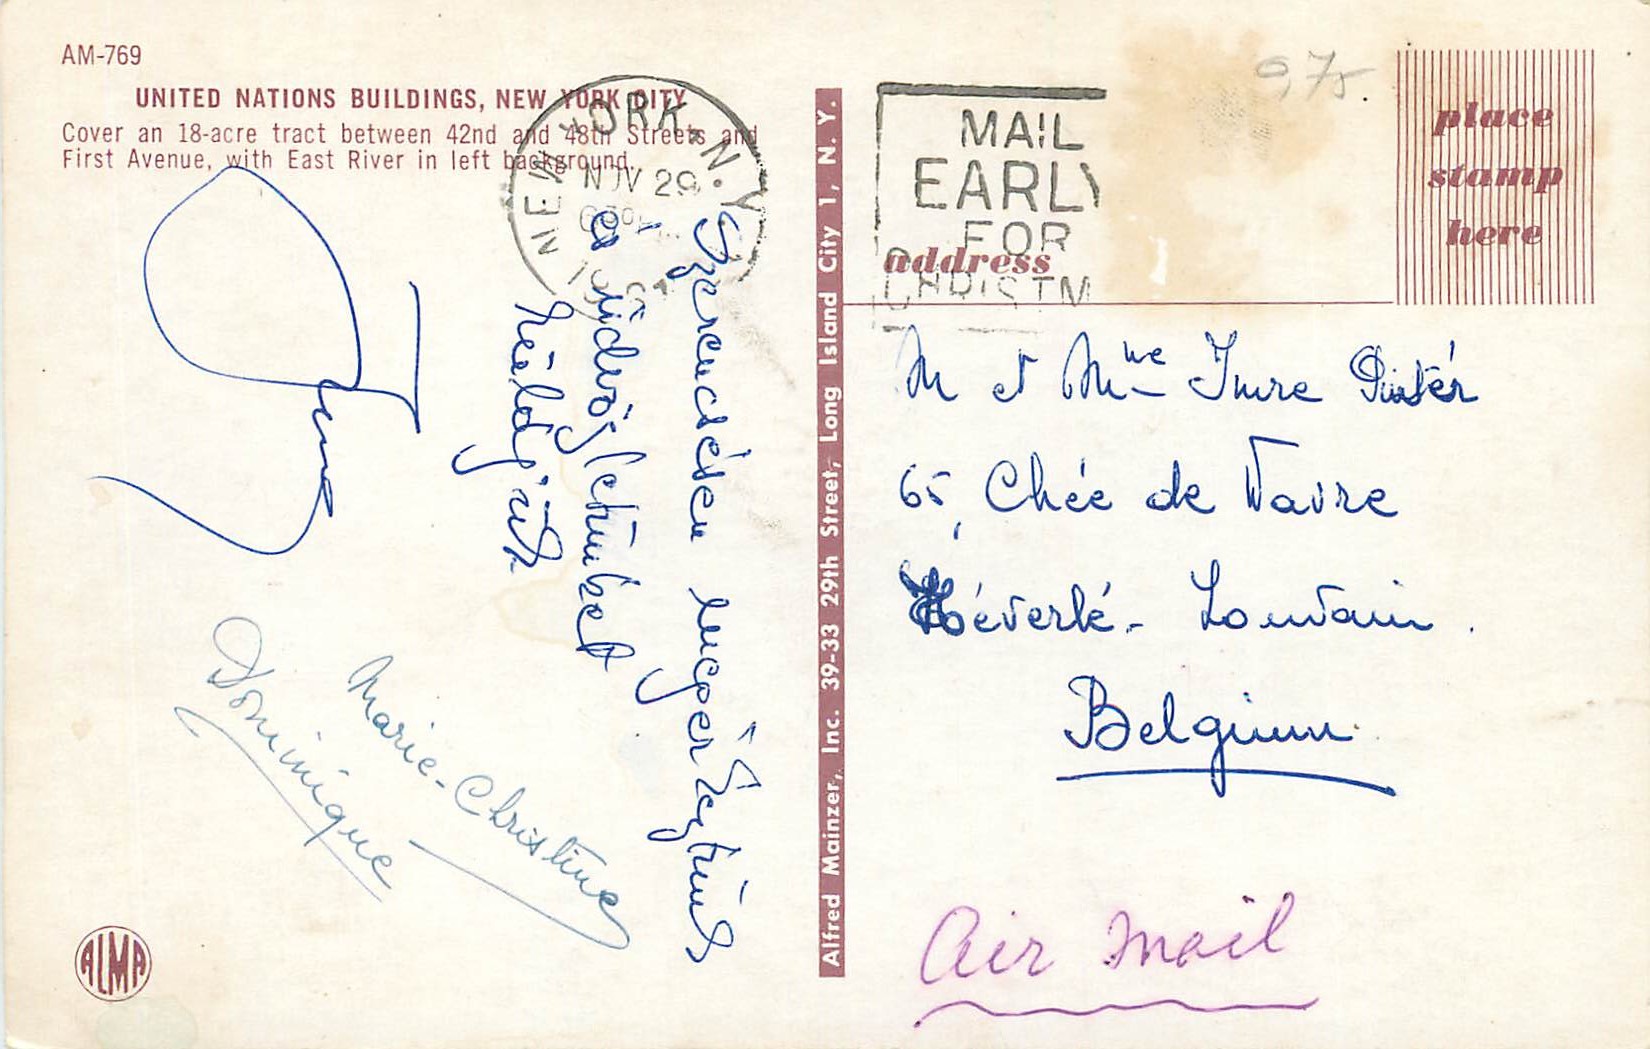 AM-769
UNITED NATIONS BUILDINGS, NEW YORK CITY
Cover an 18-acre tract between 42nd and 48th Streets and
First Avenue, with East River in left background.
NEW YORK, N.Y.
NOV 29
Szerencsésen megérkeztünk
és üdvözletünket
küldjük
Marie-Christine
Dominique
ALMA
Alfred Mainzer, Inc. 39-33 29th Street, Long Island City 1, N. Y.
MAIL
EARLY
FOR
CHRISTM
address
975.
place
stamp
here
M et Mme Imre
65, Chée de Wavre
Héverlé - Louvain.
Belgium
Air mail